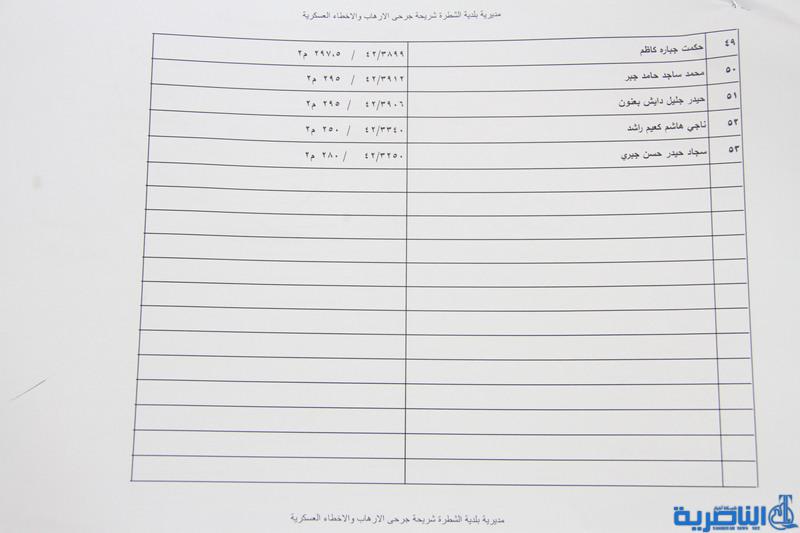 مديرية بلدية الشطرة شريحة جرحى الارهاب والاخطاء العسكرية
٤٩ حكمت جباره كاظم ٤٢/٣٨٩٩ / ٢٩٧،٥ م٢
٥٠ محمد ساجد حامد جبر ٤٢/٣٩١٢ / ٢٩٥ م٢
٥١ حيدر جليل دايش بعنون ٤٢/٣٩٠٦ / ٢٩٥ م٢
٥٢ ناجي هاشم كعيم راشد ٤٢/٣٣٤٠ / ٢٥٠ م٢
٥٣ سجاد حيدر حسن جبري ٤٢/٣٢٥٠ / ٢٨٠ م٢
مديرية بلدية الشطرة شريحة جرحى الارهاب والاخطاء العسكرية
شبكة أخبار
الناصرية
NASIRIEAH NET